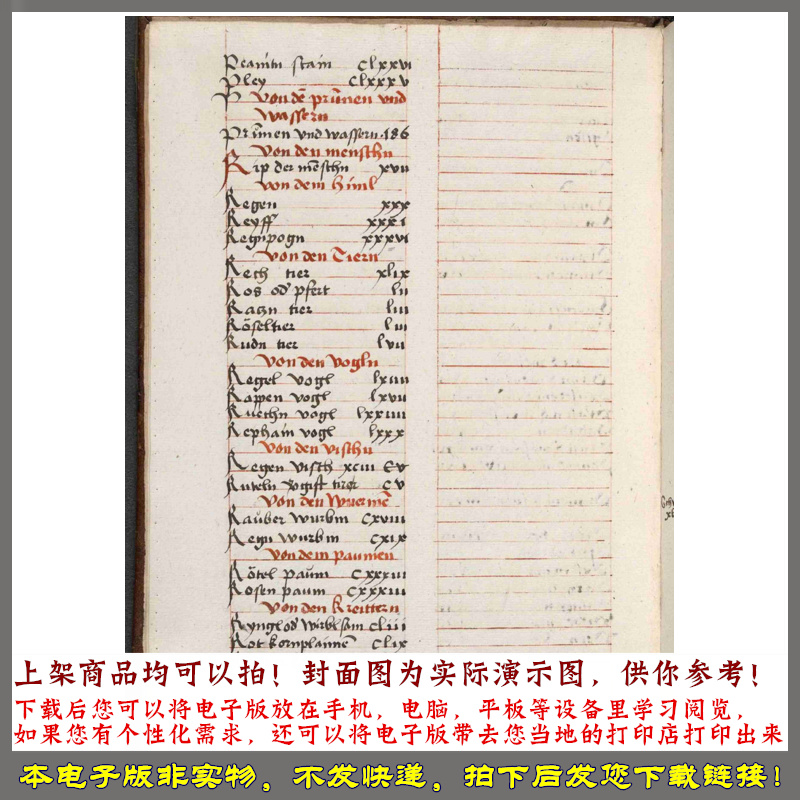 Peamin stain clxxvi
Pley clxxxv
Von dē prūnen vnd
Wassern
Prūnen vnd wassern 186
Von den menschn
Rip der mēschn xvii
Von dem himl
Regen xxx
Reyff xxxi
Regnpogn xxxvi
Von den Tiern
Rech tier xlix
Ros od pfert lii
Raczn tier liii
Röseltier
Rudn tier lvii
Von den vogln
Regel vogl lxiiii
Rappen vogl lxvii
Ruechn vogl lxxiiii
Rephain vogl lxxx
Von den vischn
Regen visch xciii
Ruteln vogift tier cv
Von den Wuermē
Rauber wurbm cxviii
Regn wurbm cxix
Von dem paumen
Rötel paum cxxxiii
Rosen paum cxxxiiii
Von den Kreittern
cliii
Rot kornplaimē clix
上架商品均可以拍！封面图为实际演示图，供你参考！
下载后您可以将电子版放在手机，电脑，平板等设备里学习阅览，
如果您有个性化需求，还可以将电子版带去您当地的打印店打印出来
本电子版非实物，不发快递，拍下后发您下载链接！